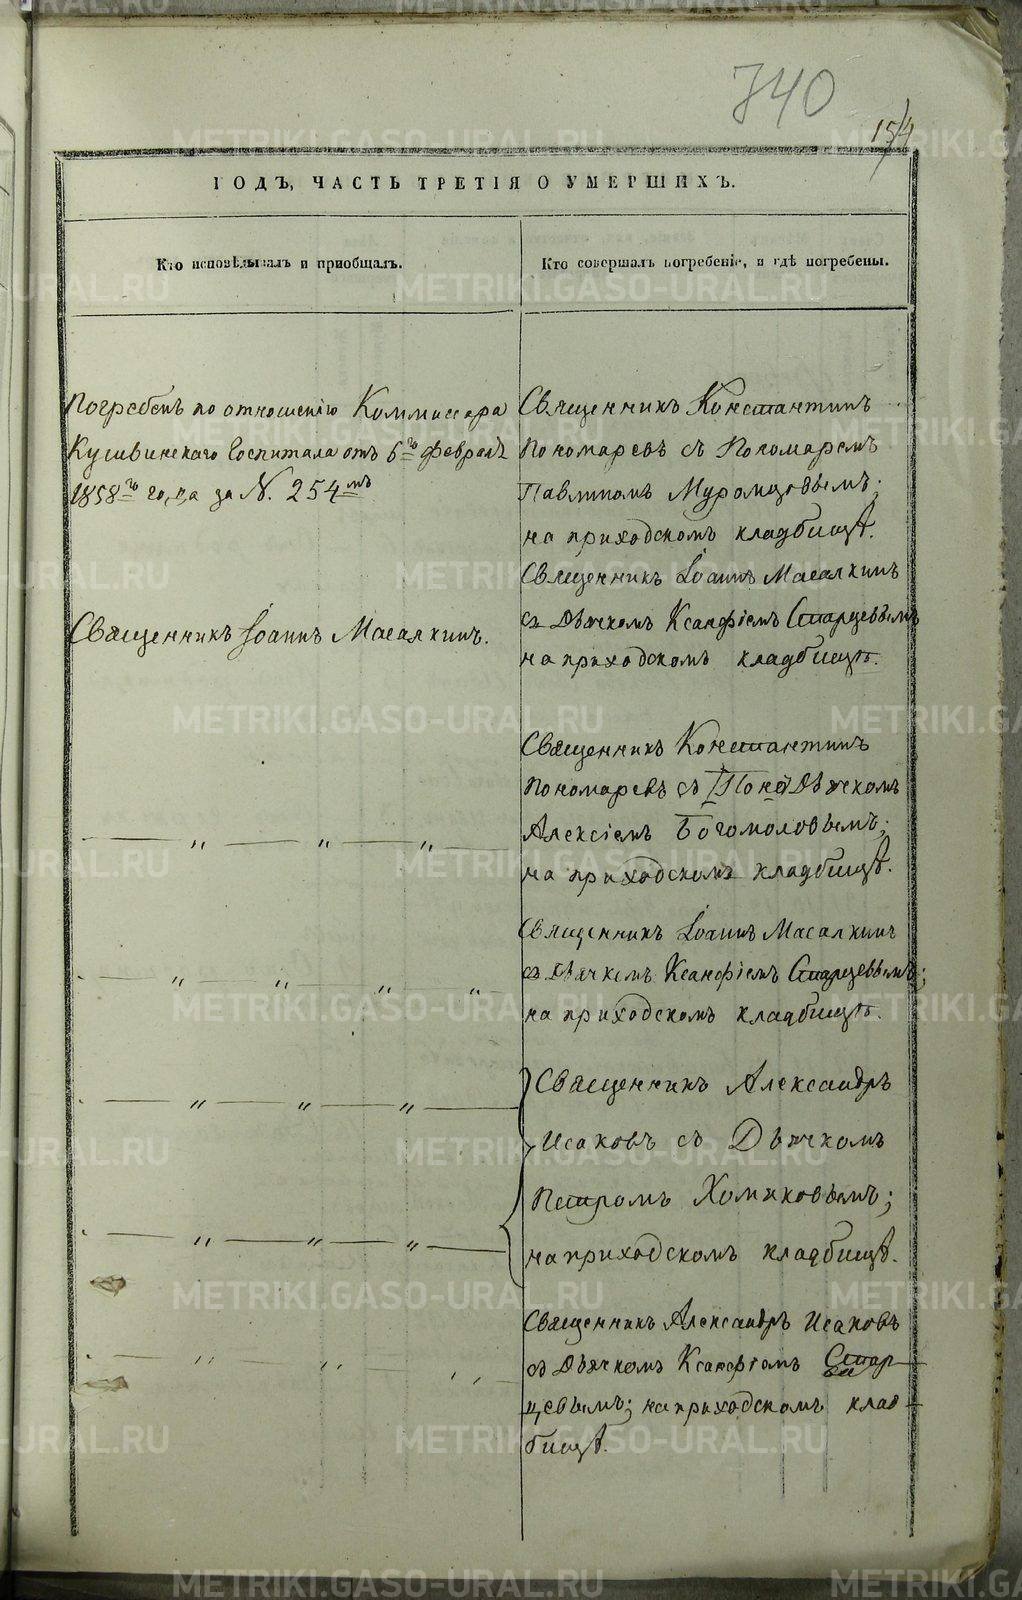 740
154
ГОДЪ, ЧАСТЬ ТРЕТІЯ О УМЕРШИХЪ.
Кто исповѣдывалъ и приобщалъ.
Кто совершалъ погребеніе, и гдѣ погребены.
Погребенъ по отношенію Коммисара
Кушвинскаго Госпиталя отъ 6го февраля
1858го года за N. 254мъ
Священникъ Константинъ
Пономаревъ съ Пономаремъ
Павлиномъ Муромцовымъ;
на приходскомъ кладбищѣ.
Священникъ Іоаннъ Масалкинъ.
Священникъ Іоаннъ Масалкинъ
съ Дьячкомъ Ксанфіемъ Старцевымъ
на приходскомъ кладбищѣ.
— „ — „ — „ —
Священникъ Константинъ
Пономаревъ съ Дьячкомъ
Алексіемъ Богомоловымъ;
на приходскомъ кладбищѣ.
— „ — „ — „ — „ —
Священникъ Іоаннъ Масалкинъ
съ Дьячкомъ Ксанфіемъ Старцевымъ;
на приходскомъ кладбищѣ.
— „ — „ — „ —
— „ — „ — „ —
Священникъ Александръ
Исаковъ съ Дьячкомъ
Петромъ Хомяковымъ;
на приходскомъ кладбищѣ.
— „ — „ —
Священникъ Александръ Исаковъ
съ Дьячкомъ Ксанфіемъ Стар-
цевымъ; на приходскомъ клад-
бищѣ.
METRIKI.GASO-URAL.RU